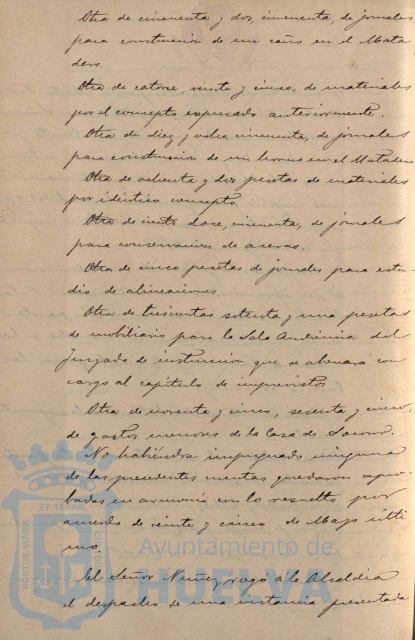 Otra de cincuenta y dos, cincuenta, de jornales
para construccion de un caño en el Mata
dero.
Otra de catorce, veinte y cinco, de materiales
por el concepto expresado anteriormente.
Otra de diez y ocho, cincuenta, de jornales
para construccion de un horno en el Matadero
Otra de ochenta y dos pesetas de materiales
por idéntico concepto.
Otra de ciento doce, cincuenta, de jornales
para conservacion de aceras.
Otra de cinco pesetas de jornales para estu-
dio de alineaciones.
Otra de trescientas setenta y una pesetas
de mobiliario para la Sala Audiencia del
Juzgado de instruccion que se abonará con
cargo al capítulo de imprevistos
Otra de noventa y cinco, sesenta y cinco,
de gastos menores de la Casa de Socorro.
No habiéndose impugnado ninguna
de las precedentes cuentas quedaron apro
badas en armonia con lo resuelto por
acuerdo de veinte y cinco de Mayo últi
mo.
El Señor Nuñez rogó a la Alcaldia
el despacho de una instancia presentada
PORTUS MARIS ET TERRAE CUSTODIO
Ayuntamiento de
HUELVA